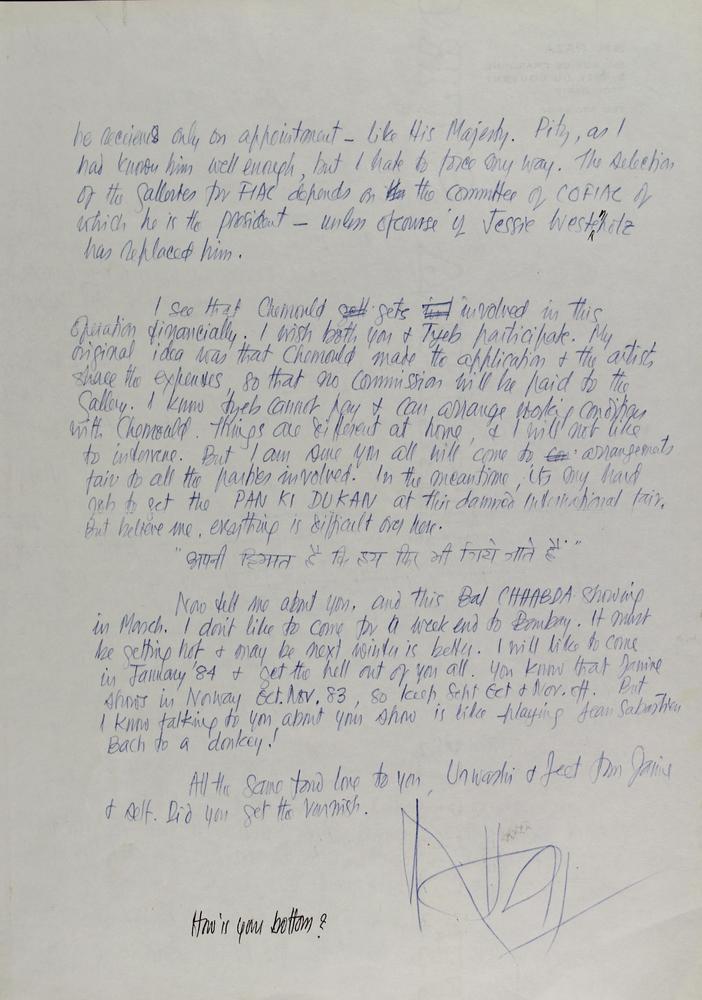 he receives only on appointment – like His Majesty. Pity, as I
had known him well enough, but I hate to force my way. The selection
of the Galleries for FIAC depends on the committee of COFIAC of
which he is the president – unless ofcourse if Jessie Westenholz
has replaced him.
I see that Chemould gets involved in this
operation financially. I wish both you & Tyeb participate. My
original idea was that Chemould made the application & the artists
share the expenses, so that no commission will be paid to the
Gallery. I know Tyeb cannot pay & can arrange working conditions
with Chemould. Things are different at home, & I will not like
to intervene. But I am sure you all will come to arrangements
fair to all the parties involved. In the meantime, it's my hard
job to get the PAN KI DUKAN at this damned International fair.
But believe me, everything is difficult over here.
"अपनी हिम्मत है कि हम फिर भी जिये जाते हैं"
Now tell me about you, and this Bal CHAABDA showing
in March. I don't like to come for a week end to Bombay. It must
be getting hot & may be next winter is better. I will like to come
in January '84 & get the hell out of you all. You know that Janine
shows in Norway Oct. Nov. 83, so keep Sept Oct & Nov. off. But
I know talking to you about your show is like playing Jean Sabastien
Bach to a donkey!
All the same fond love to you, Urwashi & Jeet from Janine
& self. Did you get the varnish.
How is your bottom?